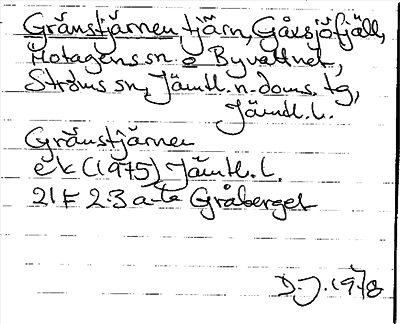 Gränstjärnen tjärn, Gåxsjöfjäll,
Hotagens sn o Byvattnet,
Ströms sn, Jämtl. n. doms. tg,
Jämtl. l.
Gränstjärnen
ek (1975) Jämtl. l.
21F 2-3 a-b Gråberget
D.J. 1978